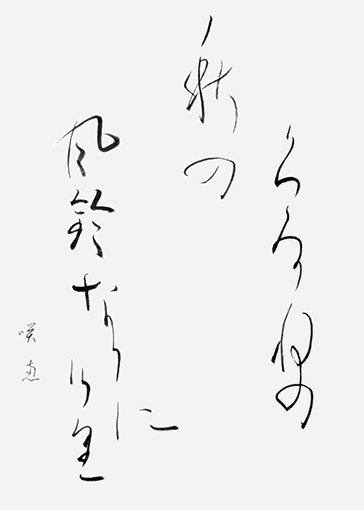 くろかねの
秋の
風鈴なりに
け里
咲恵